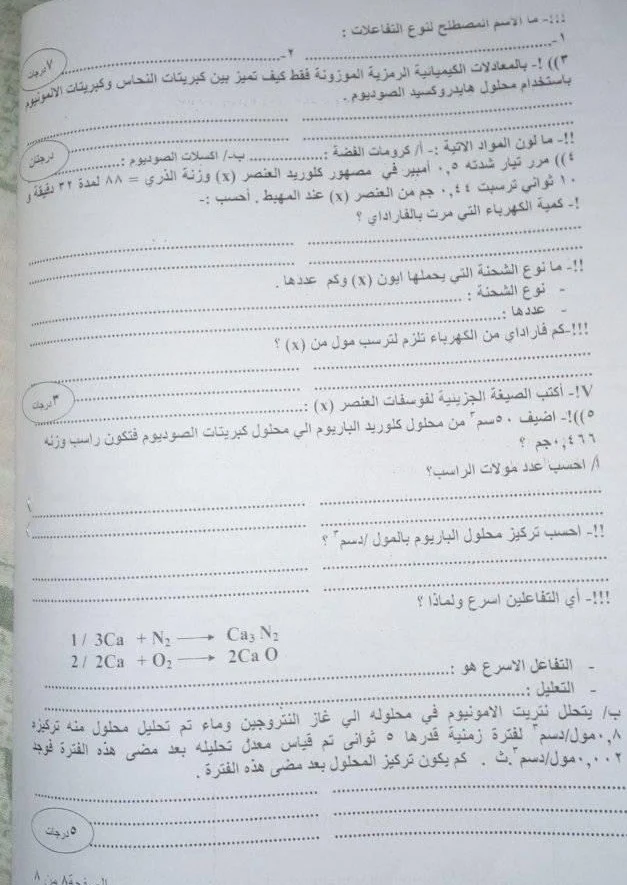 !!!- ما اسم المصطلح لنوع التفاعلات :
١- ........................................ ٢- ........................................
٧ درجات
٣)) !- بالمعادلات الكيميائية الرمزية الموزونة فقط كيف تميز بين كبريتات النحاس وكبريتات الامونيوم
باستخدام محلول هايدروكسيد الصوديوم .
!!- ما لون المواد الآتية :- أ/ كرومات الفضة : .................... ب-/ اكسلات الصوديوم : ....................
درجتان
٤)) مرر تيار شدته ٠,٥ أمبير في مصهور كلوريد العنصر (x) وزنة الذري = ٨٨ لمدة ٣٢ دقيقة و
١٠ ثواني ترسبت ٠,٤٤ جم من العنصر (x) عند المهبط . أحسب :-
!- كمية الكهرباء التي مرت بالفاراداي ؟
!!- ما نوع الشحنة التي يحملها ايون (x) وكم عددها .
- نوع الشحنة : ........................................
- عددها : ........................................
!!!- كم فاراداي من الكهرباء تلزم لترسب مول من (x) ؟
٣ درجات
!V- أكتب الصيغة الجزيئية لفوسفات العنصر (x) : ........................................
٥)) !- اضيف ٥٠سم٣ من محلول كلوريد الباريوم الي محلول كبريتات الصوديوم فتكون راسب وزنه
٠,٤٦٦جم ؟
أ/ احسب عدد مولات الراسب؟
!!- احسب تركيز محلول الباريوم بالمول /دسم٣ ؟
!!!- أي التفاعلين اسرع ولماذا ؟
1 / 3Ca + N₂ ⟶ Ca₃ N₂
2 / 2Ca + O₂ ⟶ 2Ca O
- التفاعل الاسرع هو : ........................................
- التعليل : ........................................
ب/ يتحلل نتريت الامونيوم في محلوله الي غاز النتروجين وماء تم تحليل محلول منه تركيزه
٠,٨مول/دسم٣ لفترة زمنية قدرها ٥ ثواني تم قياس معدل تحليله بعد مضى هذه الفترة فوجد
٠,٠٠٢مول/دسم٣.ث . كم يكون تركيز المحلول بعد مضى هذه الفترة .
٥ درجات
٨ من ٨